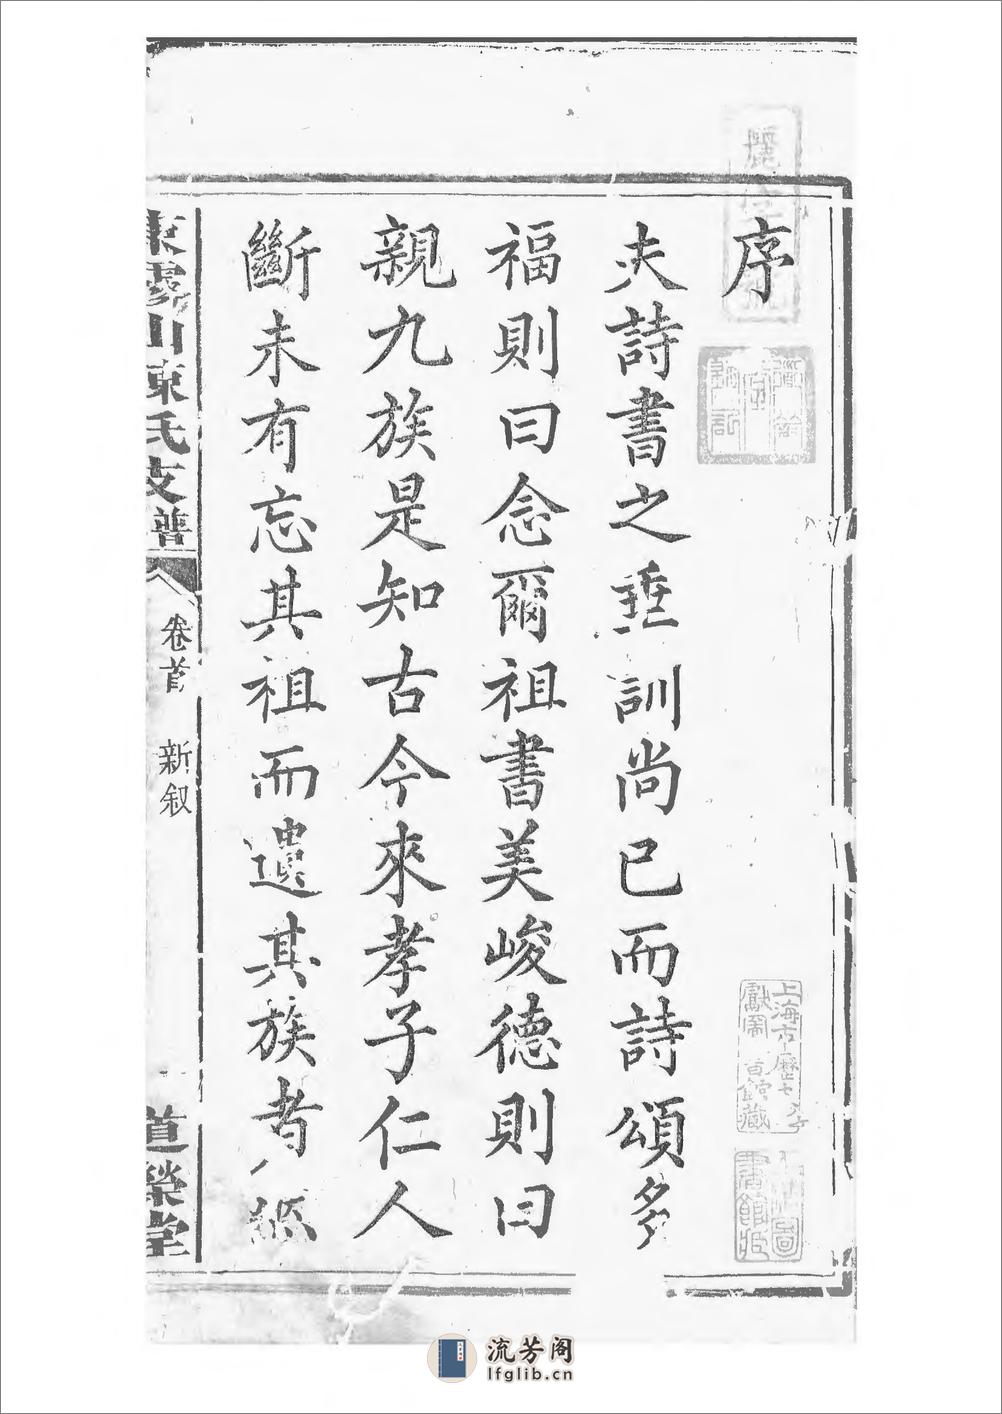 序
夫詩書之垂訓尚已而詩頌多
福則曰念爾祖書美峻德則曰
親九族是知古今來孝子仁人
斷未有忘其祖而遺其族者
山陳氏支譜
卷首 新叙
道榮堂
流芳阁
lfglib.cn